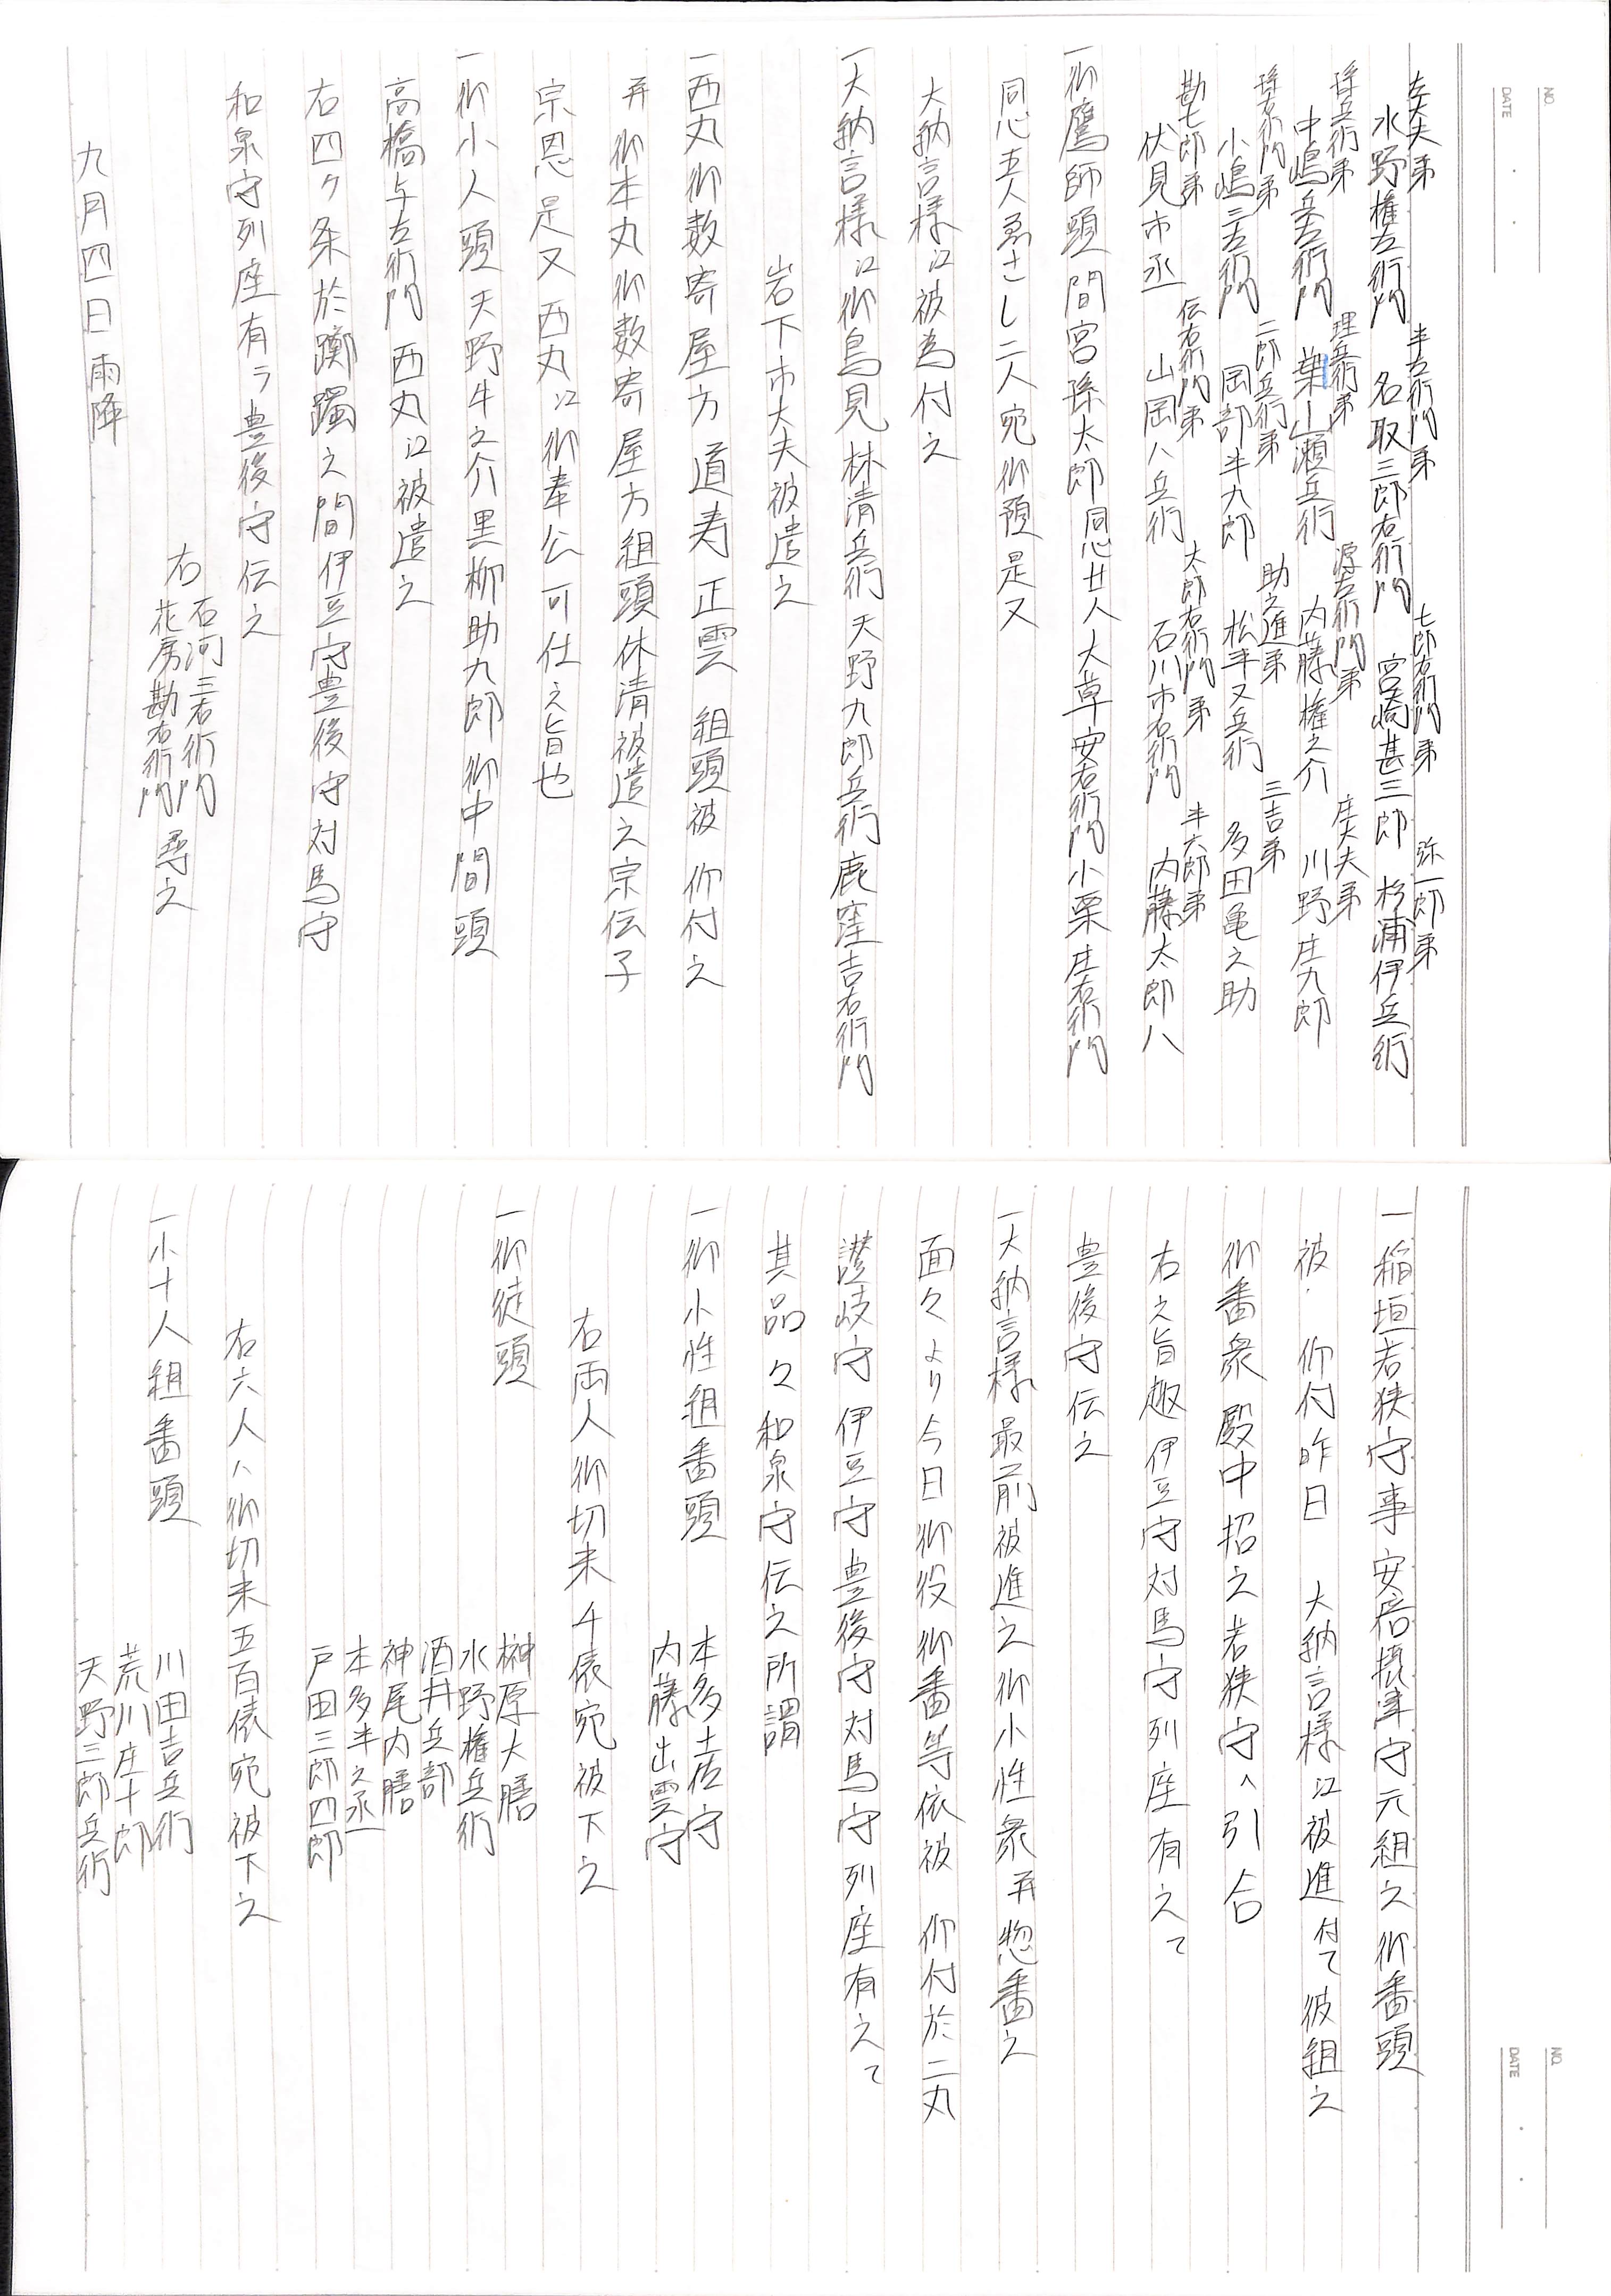 NO.
DATE
左太夫弟 半左衛門弟 七郎右衛門弟 弥一郎弟
水野権左衛門 名取三郎右衛門 宮崎甚三郎 杉浦伊兵衛
孫兵衛弟 理兵衛弟 源左衛門弟 庄太夫弟
中嶋兵左衛門 葉山瀬兵衛 内藤権之介 川野庄九郎
二郎兵衛弟 助之進弟 三吉弟
小嶋三左衛門 岡部半九郎 松平又兵衛 多田亀之助
勘七郎弟 伝右衛門弟 太郎右衛門弟 半六郎弟
伏見市丞 山岡八兵衛 石川市右衛門 内藤太郎八
一御鷹師頭間宮孫太郎同心廿人大草安右衛門小栗庄右衛門
同心五人ゑさし二人宛御預是又
大納言様江被為付之
一大納言様江御鳥見林清兵衛天野九郎兵衛鹿窪吉右衛門
岩下市太夫被遣之
一西丸御数寄屋方道寿正雲組頭被 仰付之
并御本丸御数寄屋方組頭休清被遣之宗伝子
宗恩是又西丸江御奉公可仕之旨也
一御小人頭天野牛之介黒柳助九郎御中間頭
高橋与左衛門西丸江被遣之
右四ケ条於躑躅之間伊豆守豊後守対馬守
和泉守列座有ラ豊後守伝之
右 石河三右衛門
花房勘右衛門 尋之
九月四日雨降
NO.
DATE
一稲垣若狭守事安倍摂津守元組之御番頭
被 仰付昨日 大納言様江被進付て彼組之
御番衆殿中招之若狭守へ引合
右之旨趣伊豆守対馬守列座有之て
豊後守伝之
一大納言様最前被進之御小性衆并惣番之
面々より今日御役御番等依被 仰付於二丸
讃岐守伊豆守豊後守対馬守列座有之て
其品々和泉守伝之所謂
一御小性組番頭 本多土佐守
内藤出雲守
右両人御切米千俵宛被下之
一御徒頭 榊原大膳
水野権兵衛
酒井兵部
神尾内膳
本多半之丞
戸田三郎四郎
右六人ハ御切米五百俵宛被下之
一小十人組番頭 川田吉兵衛
荒川庄十郎
天野三郎兵衛